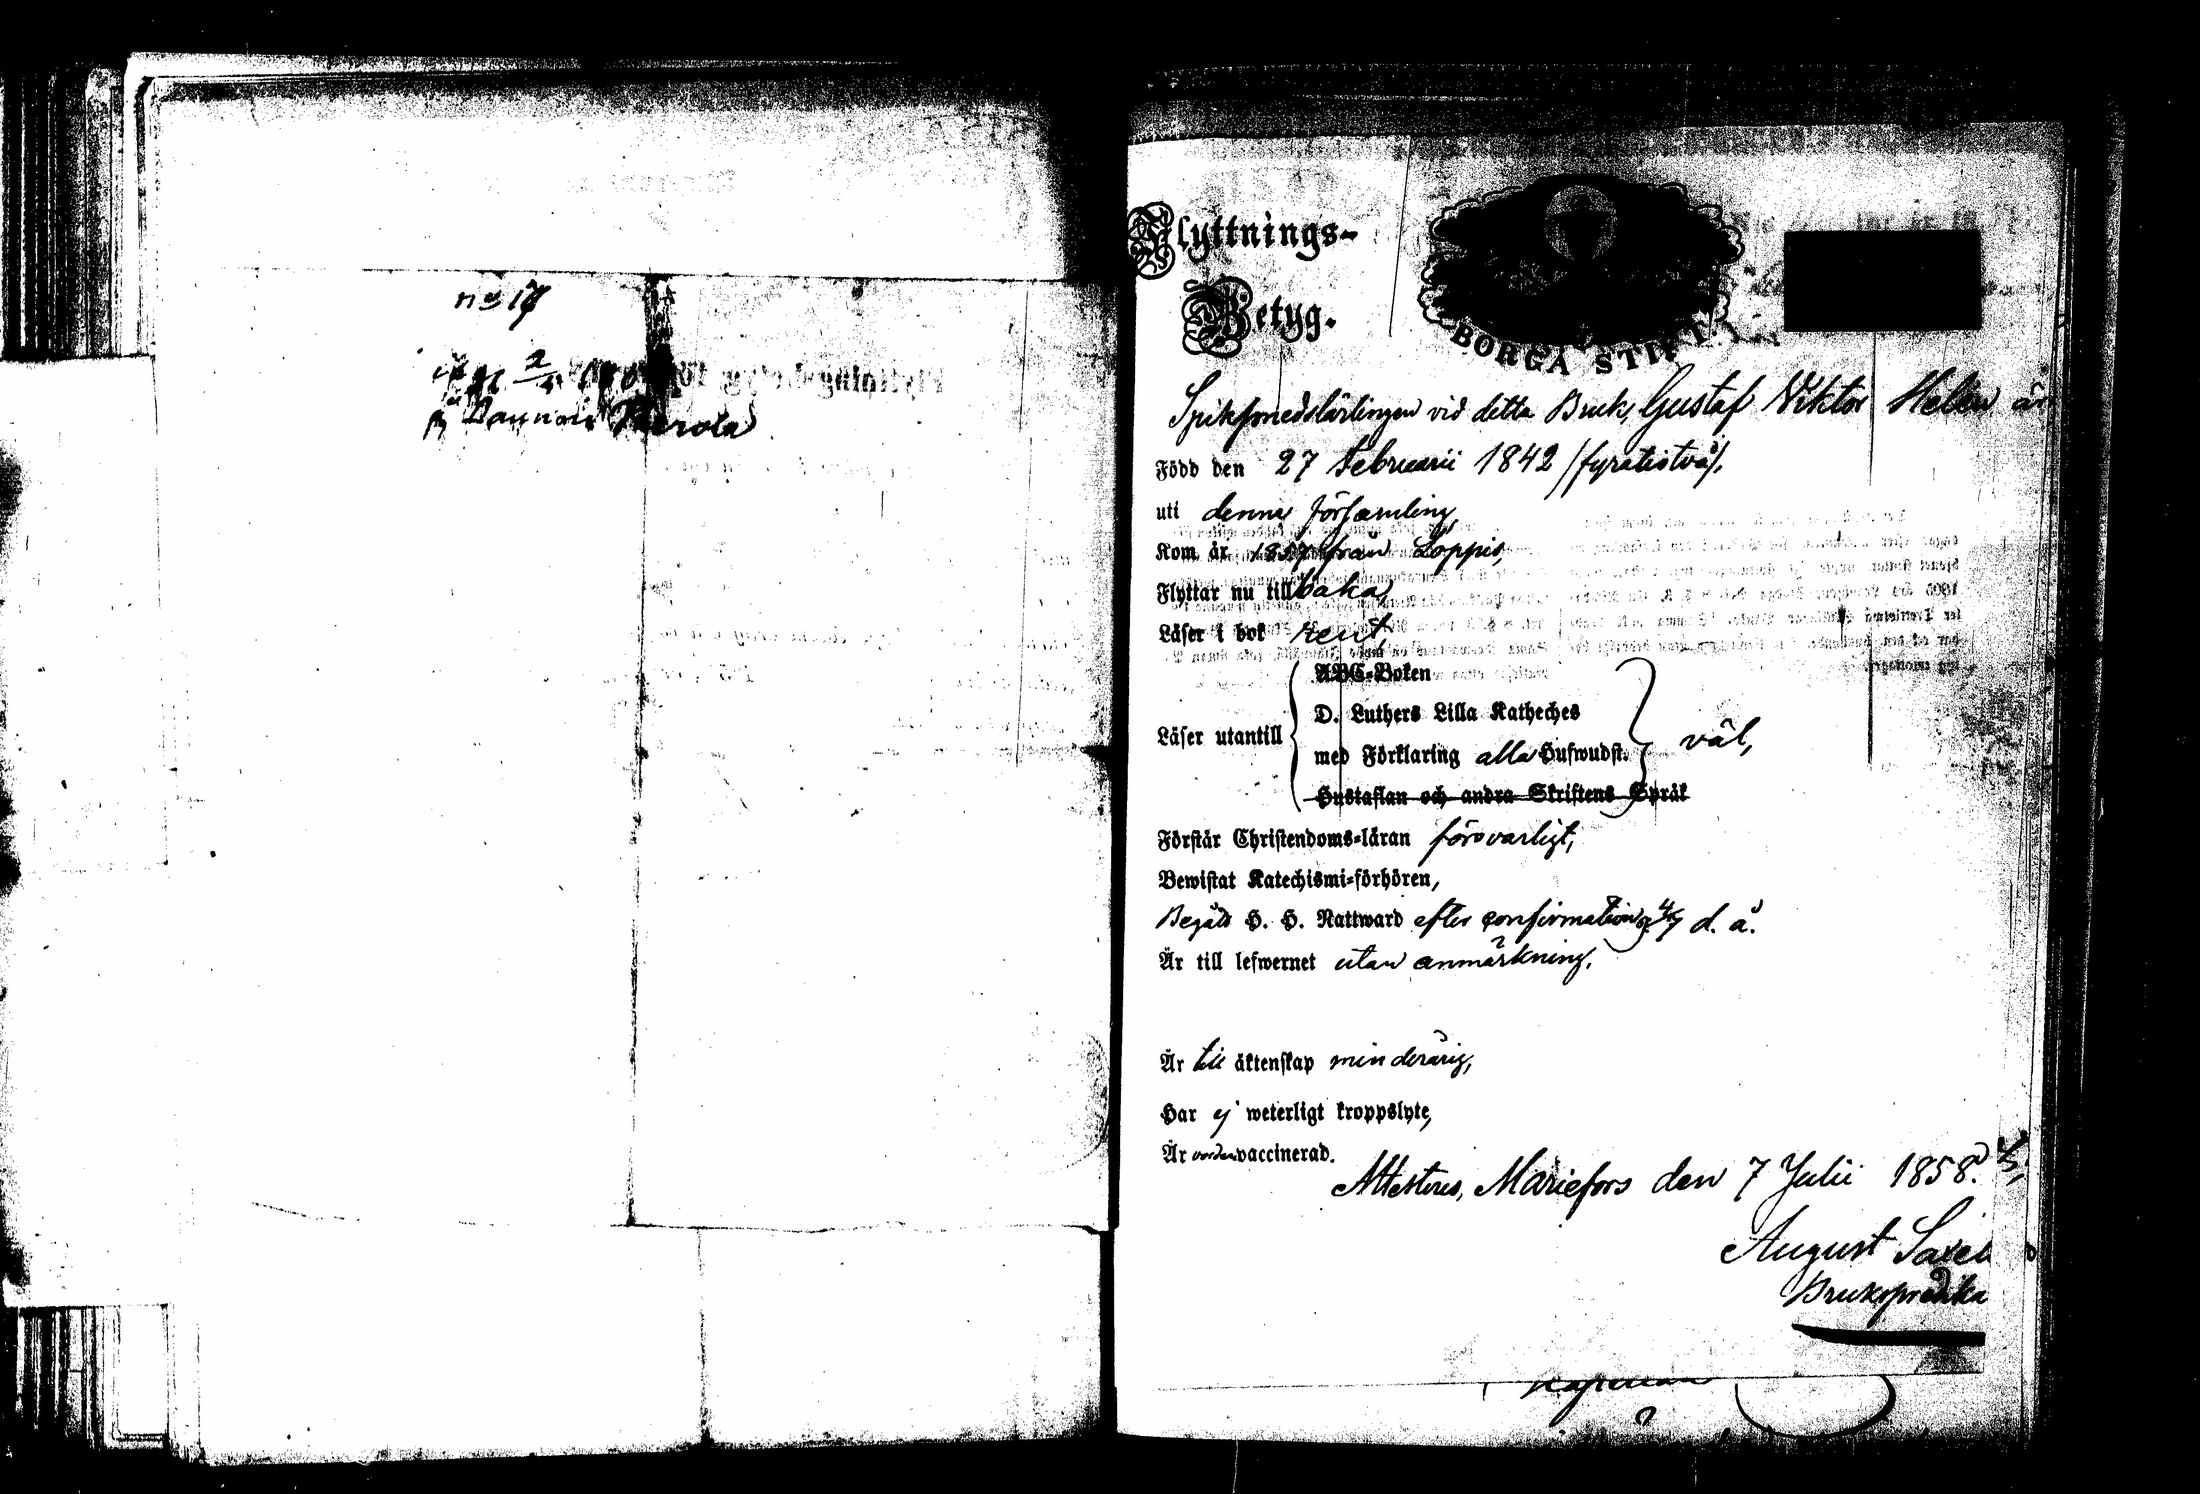 no 17
Flyttnings-
Betyg.
BORGÅ STIFT
Spiksmedslärlingen vid detta Bruk, Gustaf Viktor Helen är
Född den 27 Februarii 1842 /fyratiotvå/,
uti denna församling,
Kom år 1857 från Loppis,
Flyttar nu till baka,
Läser i bok rent,
ABC-Boken
D. Luthers Lilla Katheches
Läser utantill med Förklaring alla Hufwudst. väl,
Hustaflan och andra Skriftens Språk
Förstår Christendoms-läran försvarligt,
Bewistat Katechismi-förhören,
Begått H. H. Nattward efter confirmation d. 4/7 d. å.
Är till lefwernet utan anmärkning.
Är till äktenskap minderårig,
Har ej weterligt kroppslyte,
Är vorden vaccinerad.
Attesteras, Mariefors den 7 Julii 1858.
August
Brukspredika